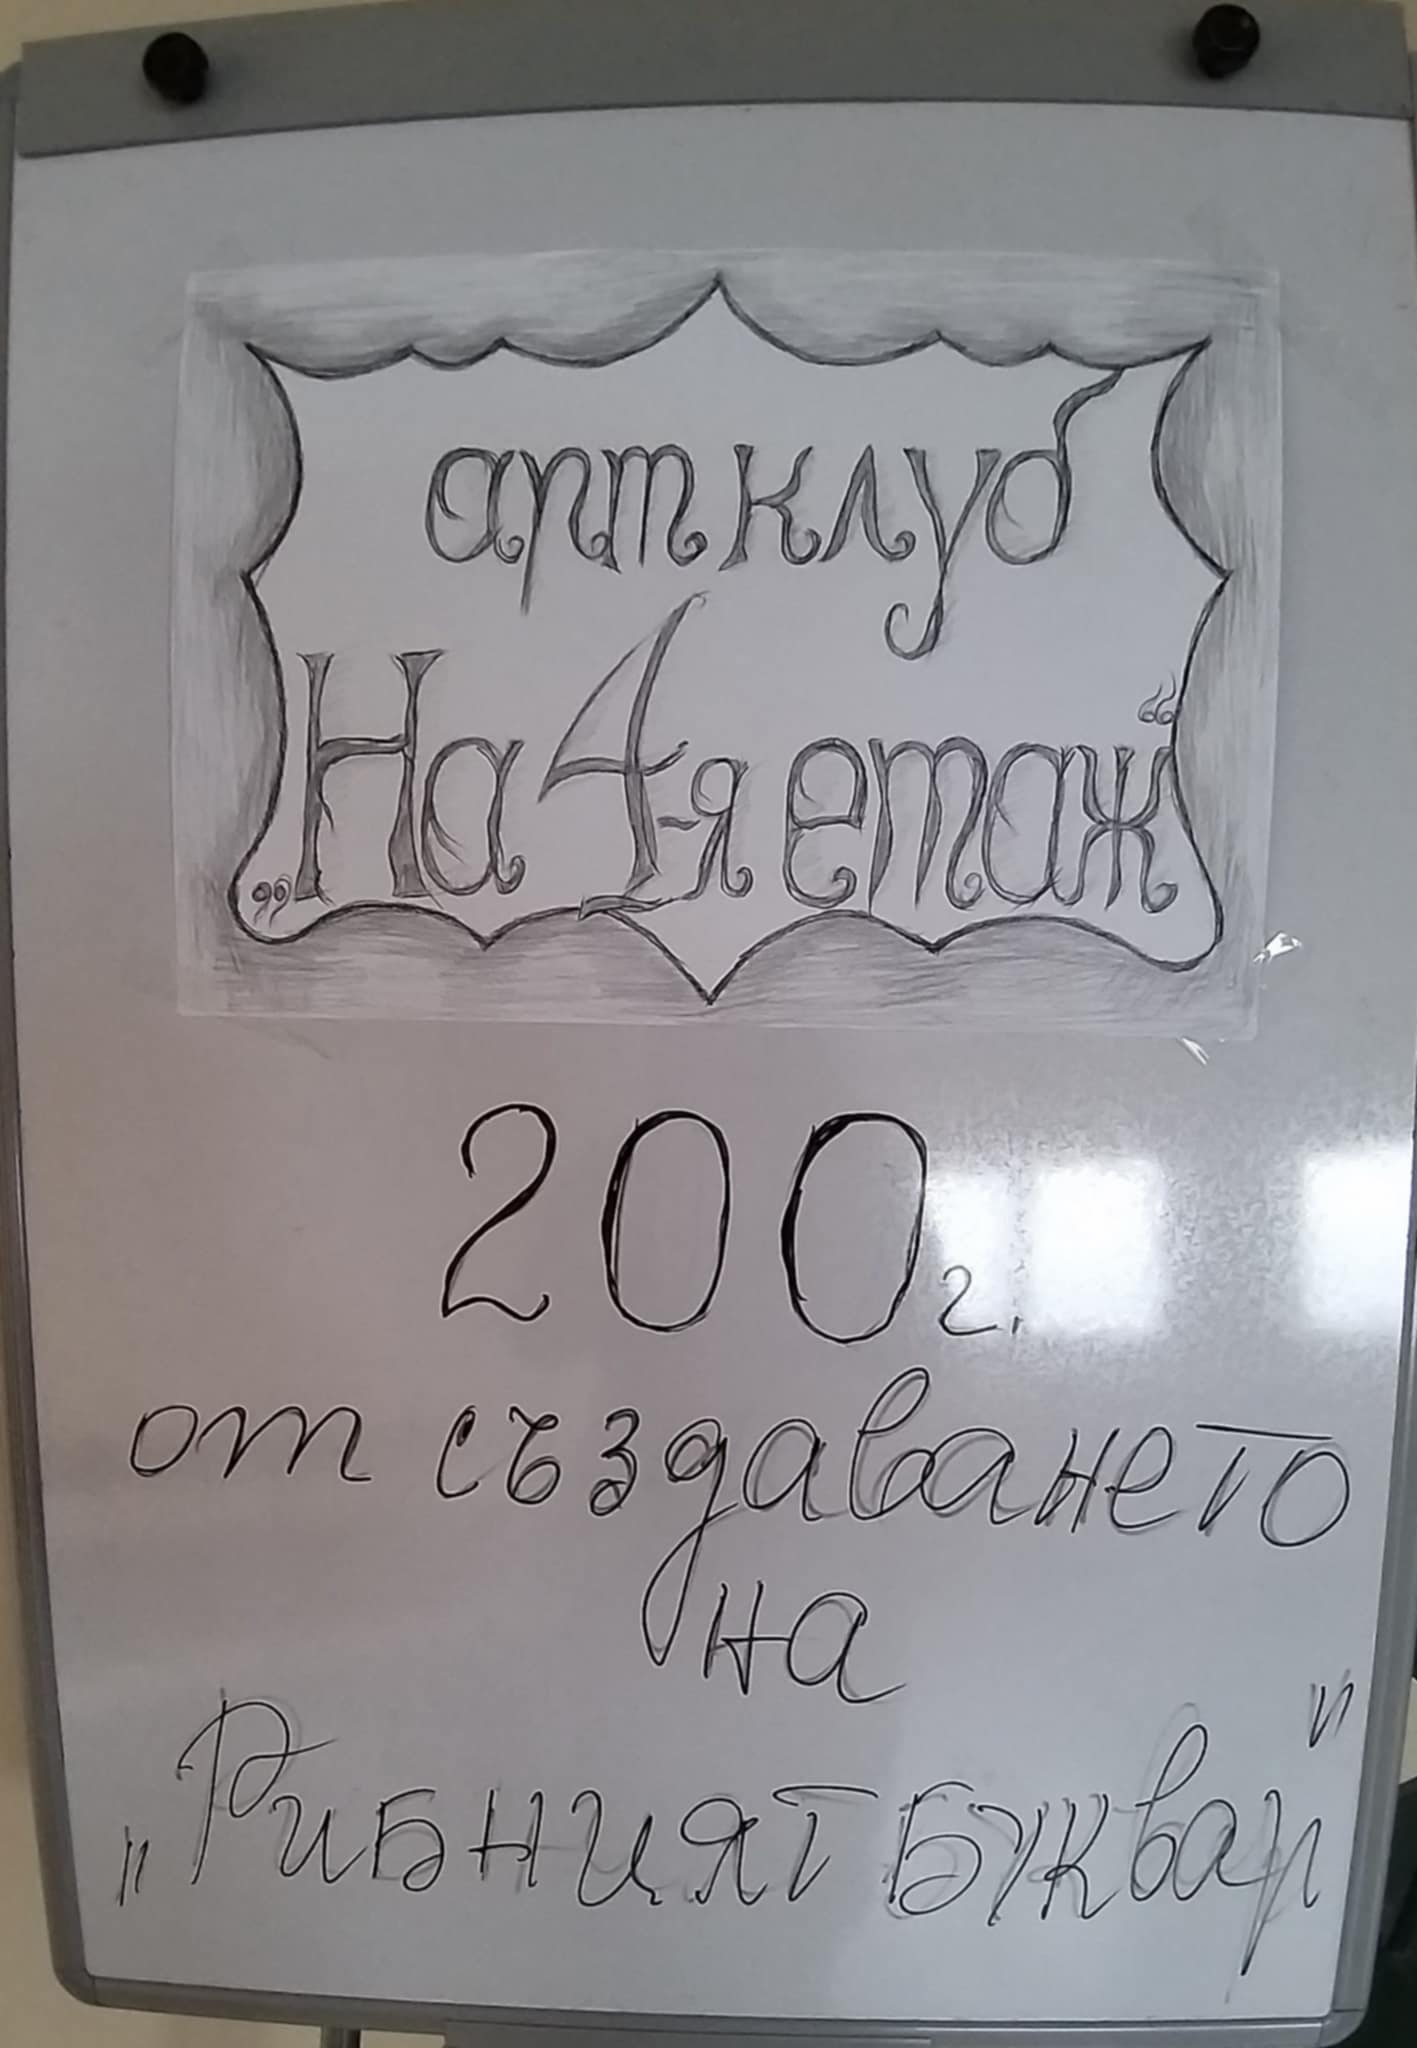 арт клуб
„На 4-я етаж“
200 г.
от създаването
на
„Рибният Буквар"